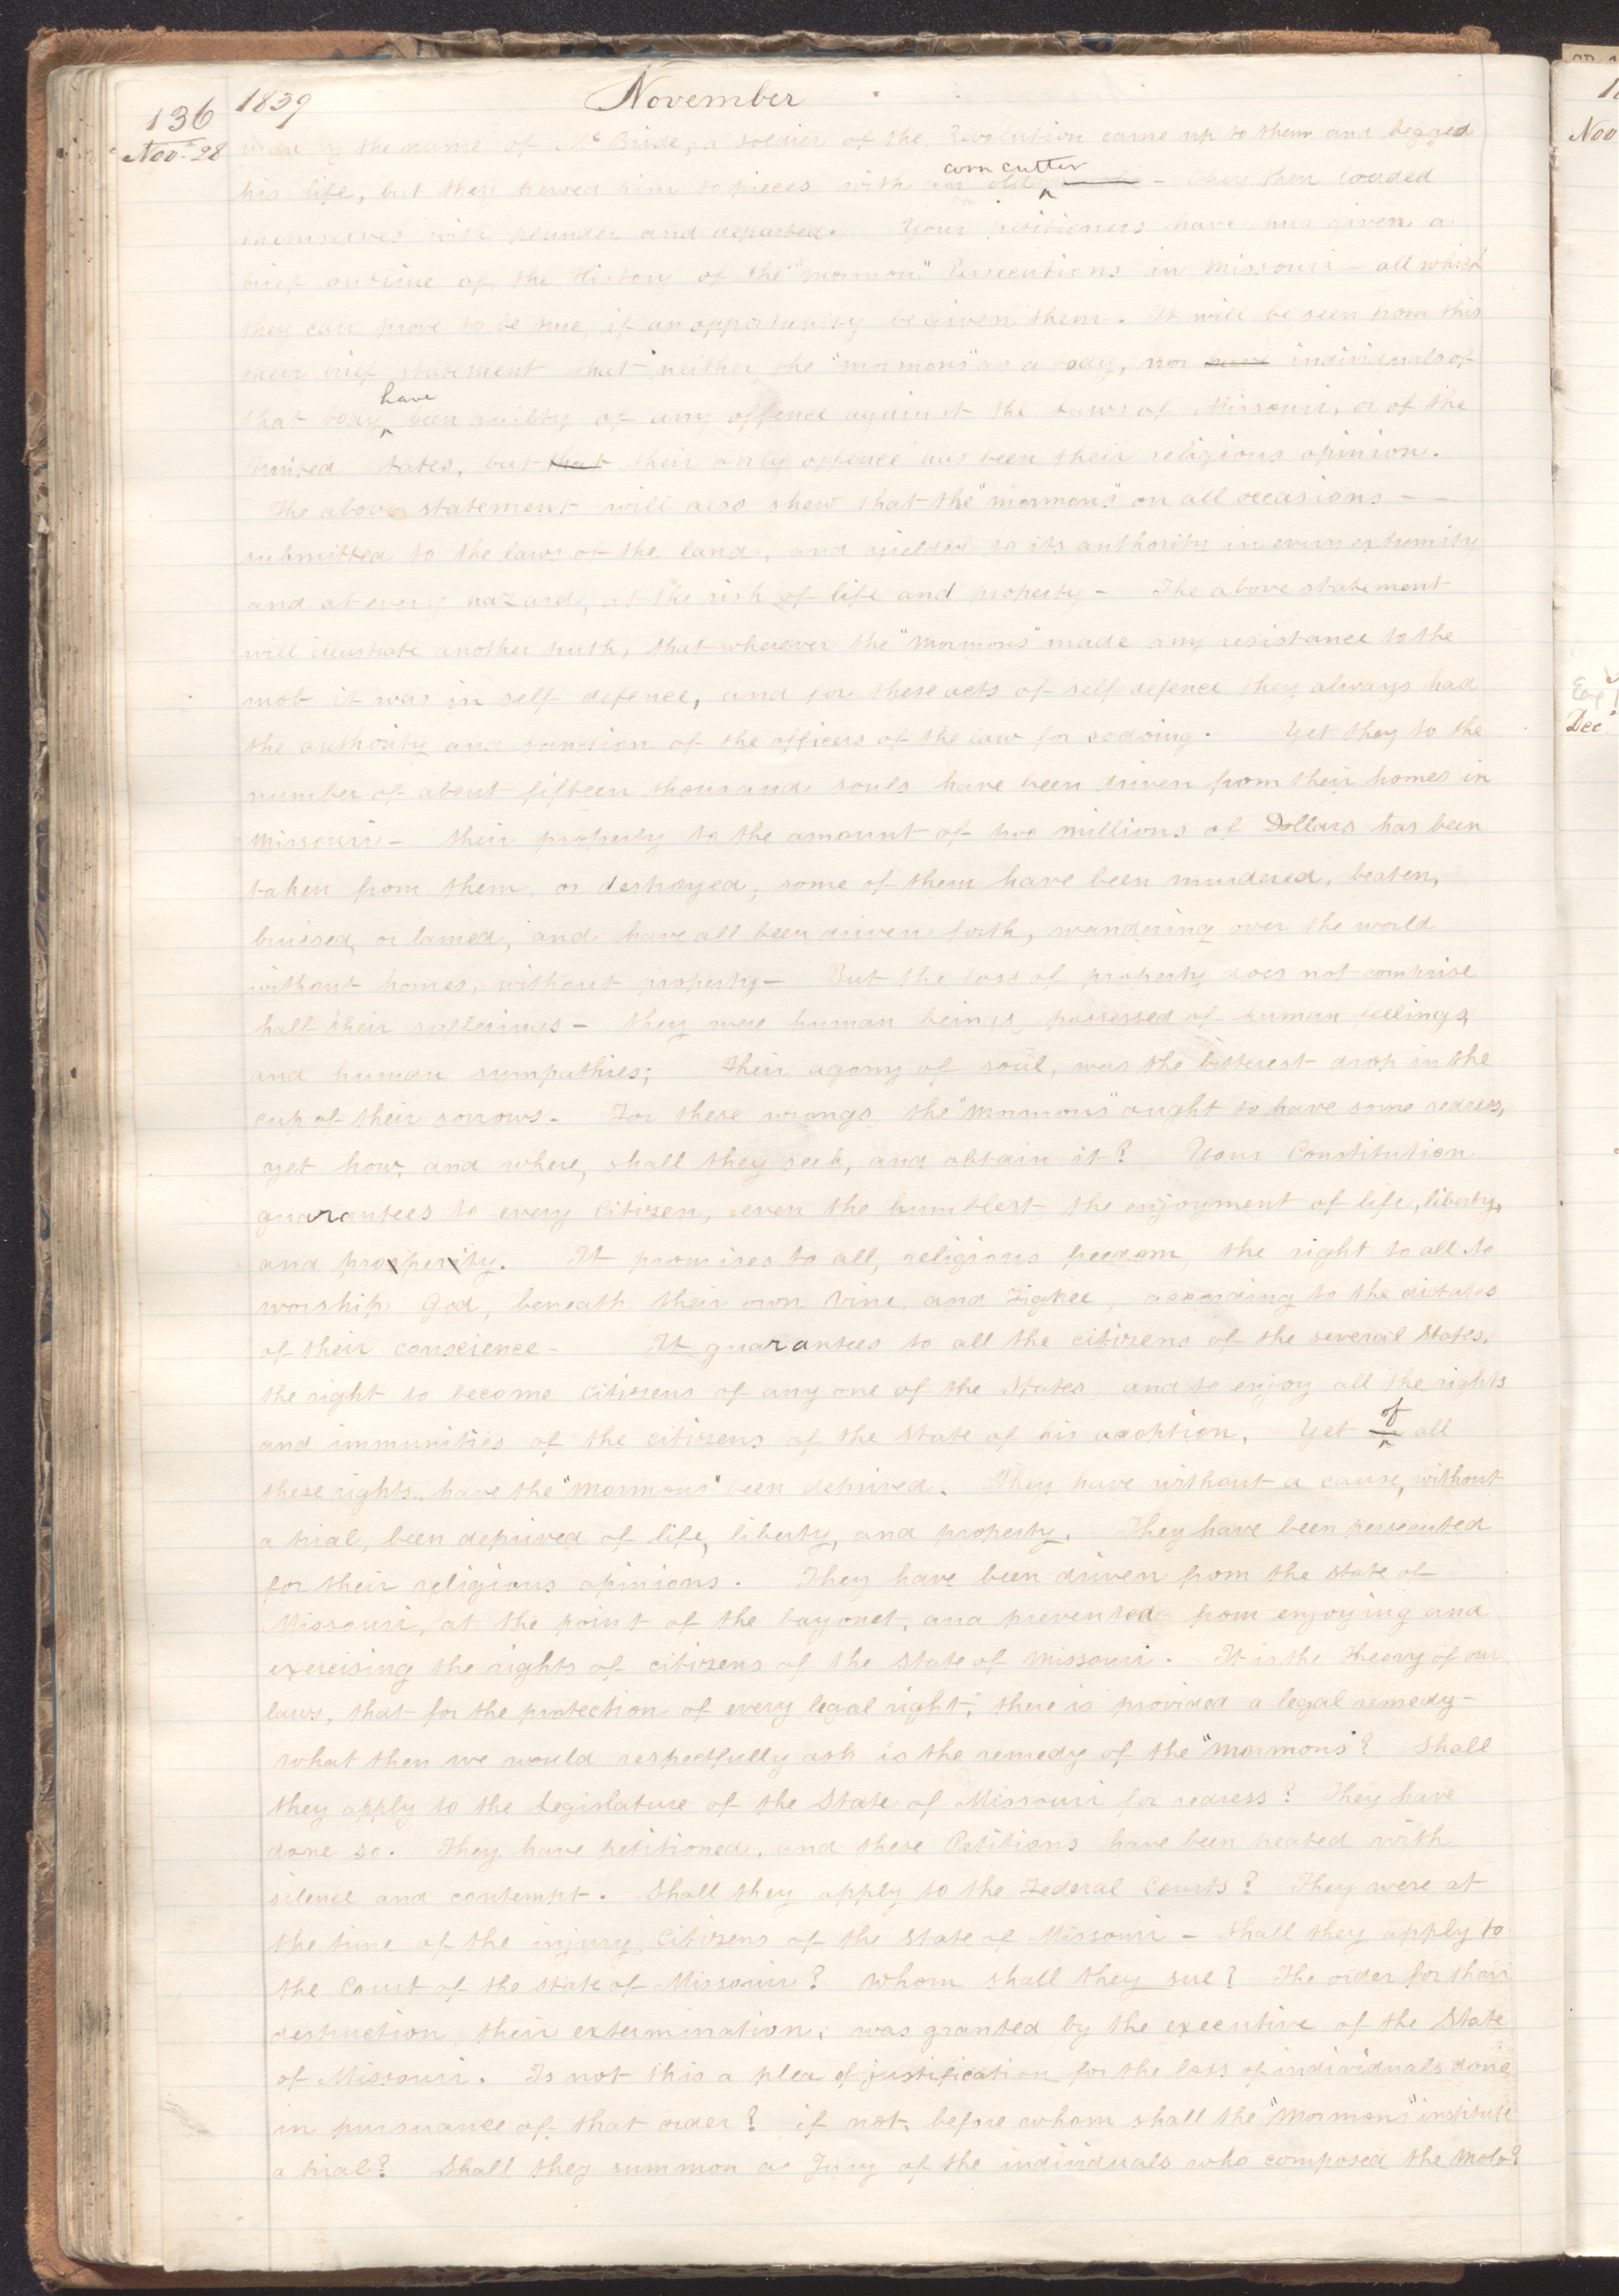 136 1839 November
Nov. 28 man by the name of Mc Bride, a soldier of the Revolution came up to them and begged
his life, but they hewed him to pieces with an old corn cutter - They then loaded
themselves with plunder and departed. Your petitioners have thus given a
brief outline of the History of the "Mormon" Persecutions in Missouri - all which
they can prove to be true, if an opportunity be given them. It will be seen from this
their brief statement that neither the "mormons" as a body, nor have individuals of
that body have been guilty of any offence against the Laws of Missouri, or of the
United States, but that their only offence has been their religious opinion.
The above statement will also shew that the "mormons" on all occasions -
submitted to the laws of the land, and yielded to its authority in every extremity
and at every hazard, at the risk of life and property - The above statement
will illustrate another truth, that wherever the "Mormons" made any resistance to the
mob it was in self defence, and for these acts of self defence they always had
the authority and sanction of the officers of the law for so doing. Yet they to the
number of about fifteen thousand souls have been driven from their homes in
Missouri - their property to the amount of two millions of Dollars has been
taken from them, or destroyed, some of them have been murdered, beaten,
bruised, or lamed, and have all been driven forth, wandering over the world
without homes, without property - But the loss of property does not comprise
half their sufferings - they were human beings, possessed of human feelings,
and human sympathies; Their agony of soul, was the bitterest drop in the
cup of their sorrows. For these wrongs, the "Mormons" ought to have some redress,
yet how, and where, shall they seek, and obtain it? Your Constitution
guarantees to every Citizen, even the humblest the enjoyment of life, liberty,
and property. It promises to all, religious freedom, the right to all to
worship God, beneath their own Vine, and Figtree, according to the dictates
of their conscience - It guarantees to all the citizens of the several States,
the right to become Citizens of any one of the States, and to enjoy all the rights
and immunities of the citizens of the State of his adoption. Yet of all
these rights, have the "Mormons" been deprived. They have without a cause, without
a trial, been deprived of life, liberty, and property. They have been persecuted
for their religious opinions. They have been driven from the State of
Missouri, at the point of the bayonet, and prevented from enjoying and
exercising the rights of citizens of the State of Missouri. It is the theory of our
laws, that for the protection of every legal right, there is provided a legal remedy -
what then we would respectfully ask is the remedy of the "Mormons"? Shall
they apply to the Legislature of the State of Missouri for redress? They have
done so. They have petitioned, and these Petitions have been treated with
silence and contempt. Shall they apply to the Federal Courts? They were at
the time of the injury, Citizens of the State of Missouri - Shall they apply to
the Court of the State of Missouri? whom shall they sue? The order for their
destruction, their extermination, was granted by the executive of the State
of Missouri. Is not this a plea of justification for the loss of individuals done
in pursuance of that order? if not, before whom shall the "Mormons" institute
a trial? Shall they summon a Jury of the individuals who composed the Mob?
Nov
Dec